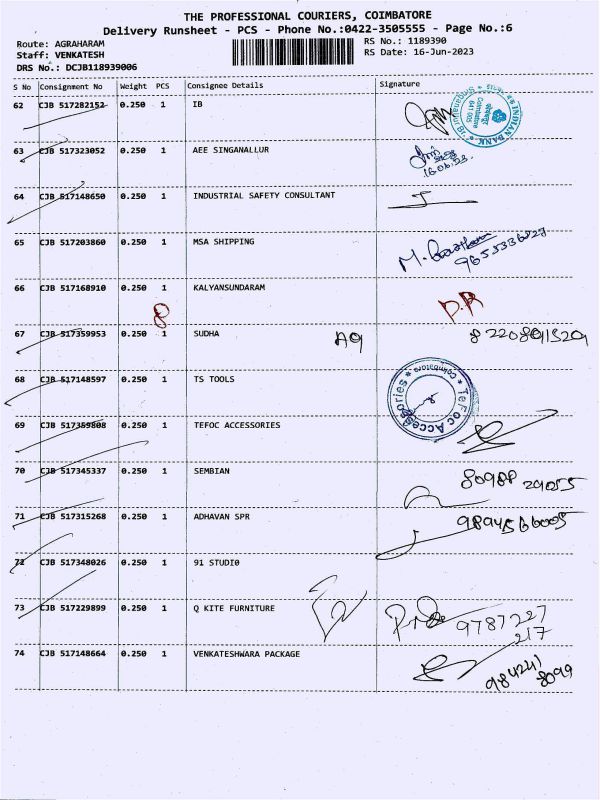 THE PROFESSIONAL COURIERS, COIMBATORE
Delivery Runsheet - PCS - Phone No.:0422-3505555 - Page No.:6
Route: AGRAHARAM RS No.: 1189390
Staff: VENKATESH RS Date: 16-Jun-2023
DRS No.: DCJB118939006
S No Consignment No Weight PCS Consignee Details Signature
62 CJB 517282152 0.250 1 IB
INDIAN BANK
Coimbatore
641 005
63 CJB 517323052 0.250 1 AEE SINGANALLUR
64 CJB 517148650 0.250 1 INDUSTRIAL SAFETY CONSULTANT
65 CJB 517203860 0.250 1 MSA SHIPPING
66 CJB 517168910 0.250 1 KALYANSUNDARAM
8 D.R
67 CJB 517359953 0.250 1 SUDHA
68 CJB 517148597 0.250 1 TS TOOLS
69 CJB 517359808 0.250 1 TEFOC ACCESSORIES
TeFoc Accessories * Coimbatore *
70 CJB 517345337 0.250 1 SEMBIAN 80988 29055
71 CJB 517315268 0.250 1 ADHAVAN SPR 9894566005
72 CJB 517348026 0.250 1 91 STUDIO
73 CJB 517229899 0.250 1 Q KITE FURNITURE 9787227
217
74 CJB 517148664 0.250 1 VENKATESHWARA PACKAGE 984241
8099